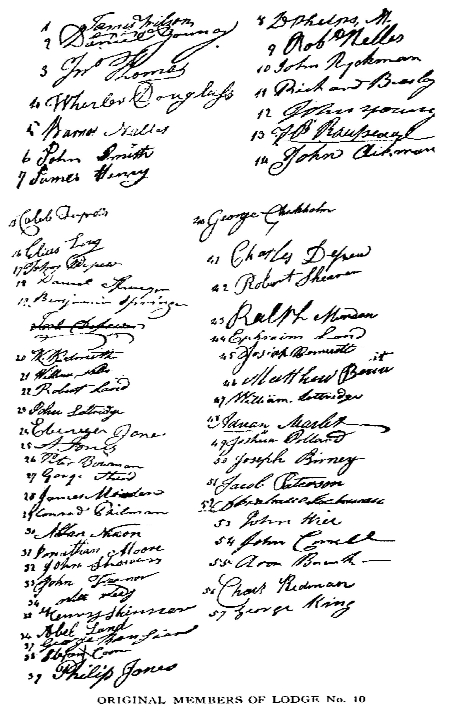 1 James Wilson
2 Daniel Young
3 Jno Thomas
4 Wheeler Douglass
5 Warner Nelles
6 John Smith
7 James Henry
8 D Phelps, M.
9 Robt Nelles
10 John Ryckman
11 Richard Beasley
12 John Young
13 JB Rousseaux
14 John Aikman
15 Caleb
16 Elias Long
17 John Depew
18 Daniel
19 Benjamin Springer
20 W.
21
22 Robert Land
23 John Lottridge
24 Ebenezer Jones
25 S. Jones
26 Peter Bowman
27 George
28 James
29 Conrad
30 Allan Nixon
31 Jonathan Moore
32 John
33 John
34
35 Henry Skinner
36 Abel Land
37 George
38 Coon
39 Philip Jones
40 George Chisholm
41 Charles Depew
42 Robert Shearer
43 Ralph Morden
44 Ephraim Land
45 Josiah Bennett
46 Matthew
47 William Lottridge
48 Adrian Marlet
49 Joshua
50 Joseph Birney
51 Jacob Peterson
52
53 John Hill
54 John Connell
55 Aron
56 Charles Redman
57 George King
ORIGINAL MEMBERS OF LODGE No. 10